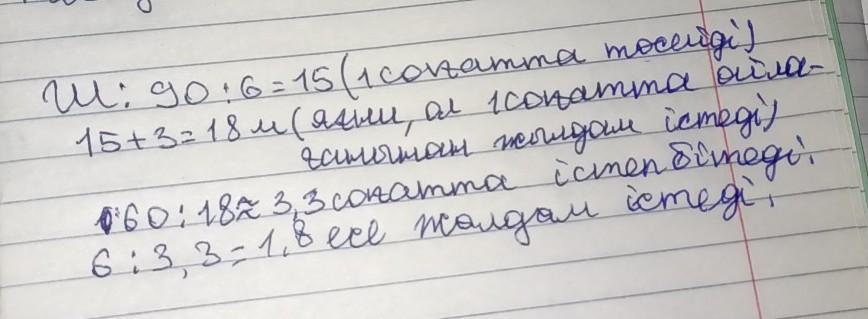 Ш: 90 : 6 = 15 (1 сонатта төсейді)
15 + 3 = 18 м (яғни, ал 1 сонатта ойла-
ғанынан жылдам істеді)
60 : 18 ≈ 3,3 сонатта істеп бітеді.
6 : 3,3 = 1,8 есе жалдам істеді.